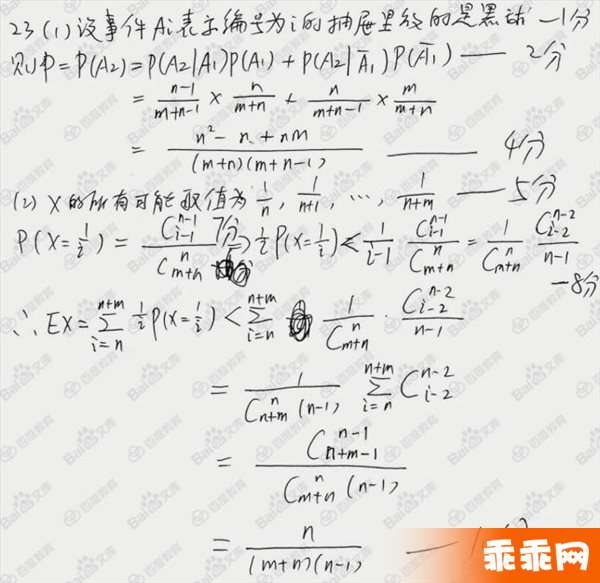 23 (1) 设事件Ai表示编号为i的抽屉里放的是黑球 —1分
则 P = P(A2) = P(A2|A1)P(A1) + P(A2|Ā1)P(Ā1) —— 2分
= n-1/m+n-1 × n/m+n + n/m+n-1 × m/m+n
= n²-n+nm/(m+n)(m+n-1) —— 4分
(2) X的所有可能取值为 1/n, 1/n+1, …, 1/n+m —— 5分
P(X=1/i) = C_{i-1}^{n-1}/C_{m+n}^{n} 7分 1/i P(X=1/i) ≤ 1/i-1 C_{i-1}^{n-1}/C_{m+n}^{n} = 1/C_{m+n}^{n} C_{i-2}^{n-2}/n-1
—8分
∴ EX = Σ_{i=n}^{n+m} 1/i P(X=1/i) < Σ_{i=n}^{n+m} 1/C_{m+n}^{n} · C_{i-2}^{n-2}/n-1
= 1/C_{n+m}^{n}(n-1) Σ_{i=n}^{n+m} C_{i-2}^{n-2}
= C_{n+m-1}^{n-1}/C_{m+n}^{n}(n-1)
= n/(m+n)(n-1) —
乖乖网
Bai百度文库
百度教育